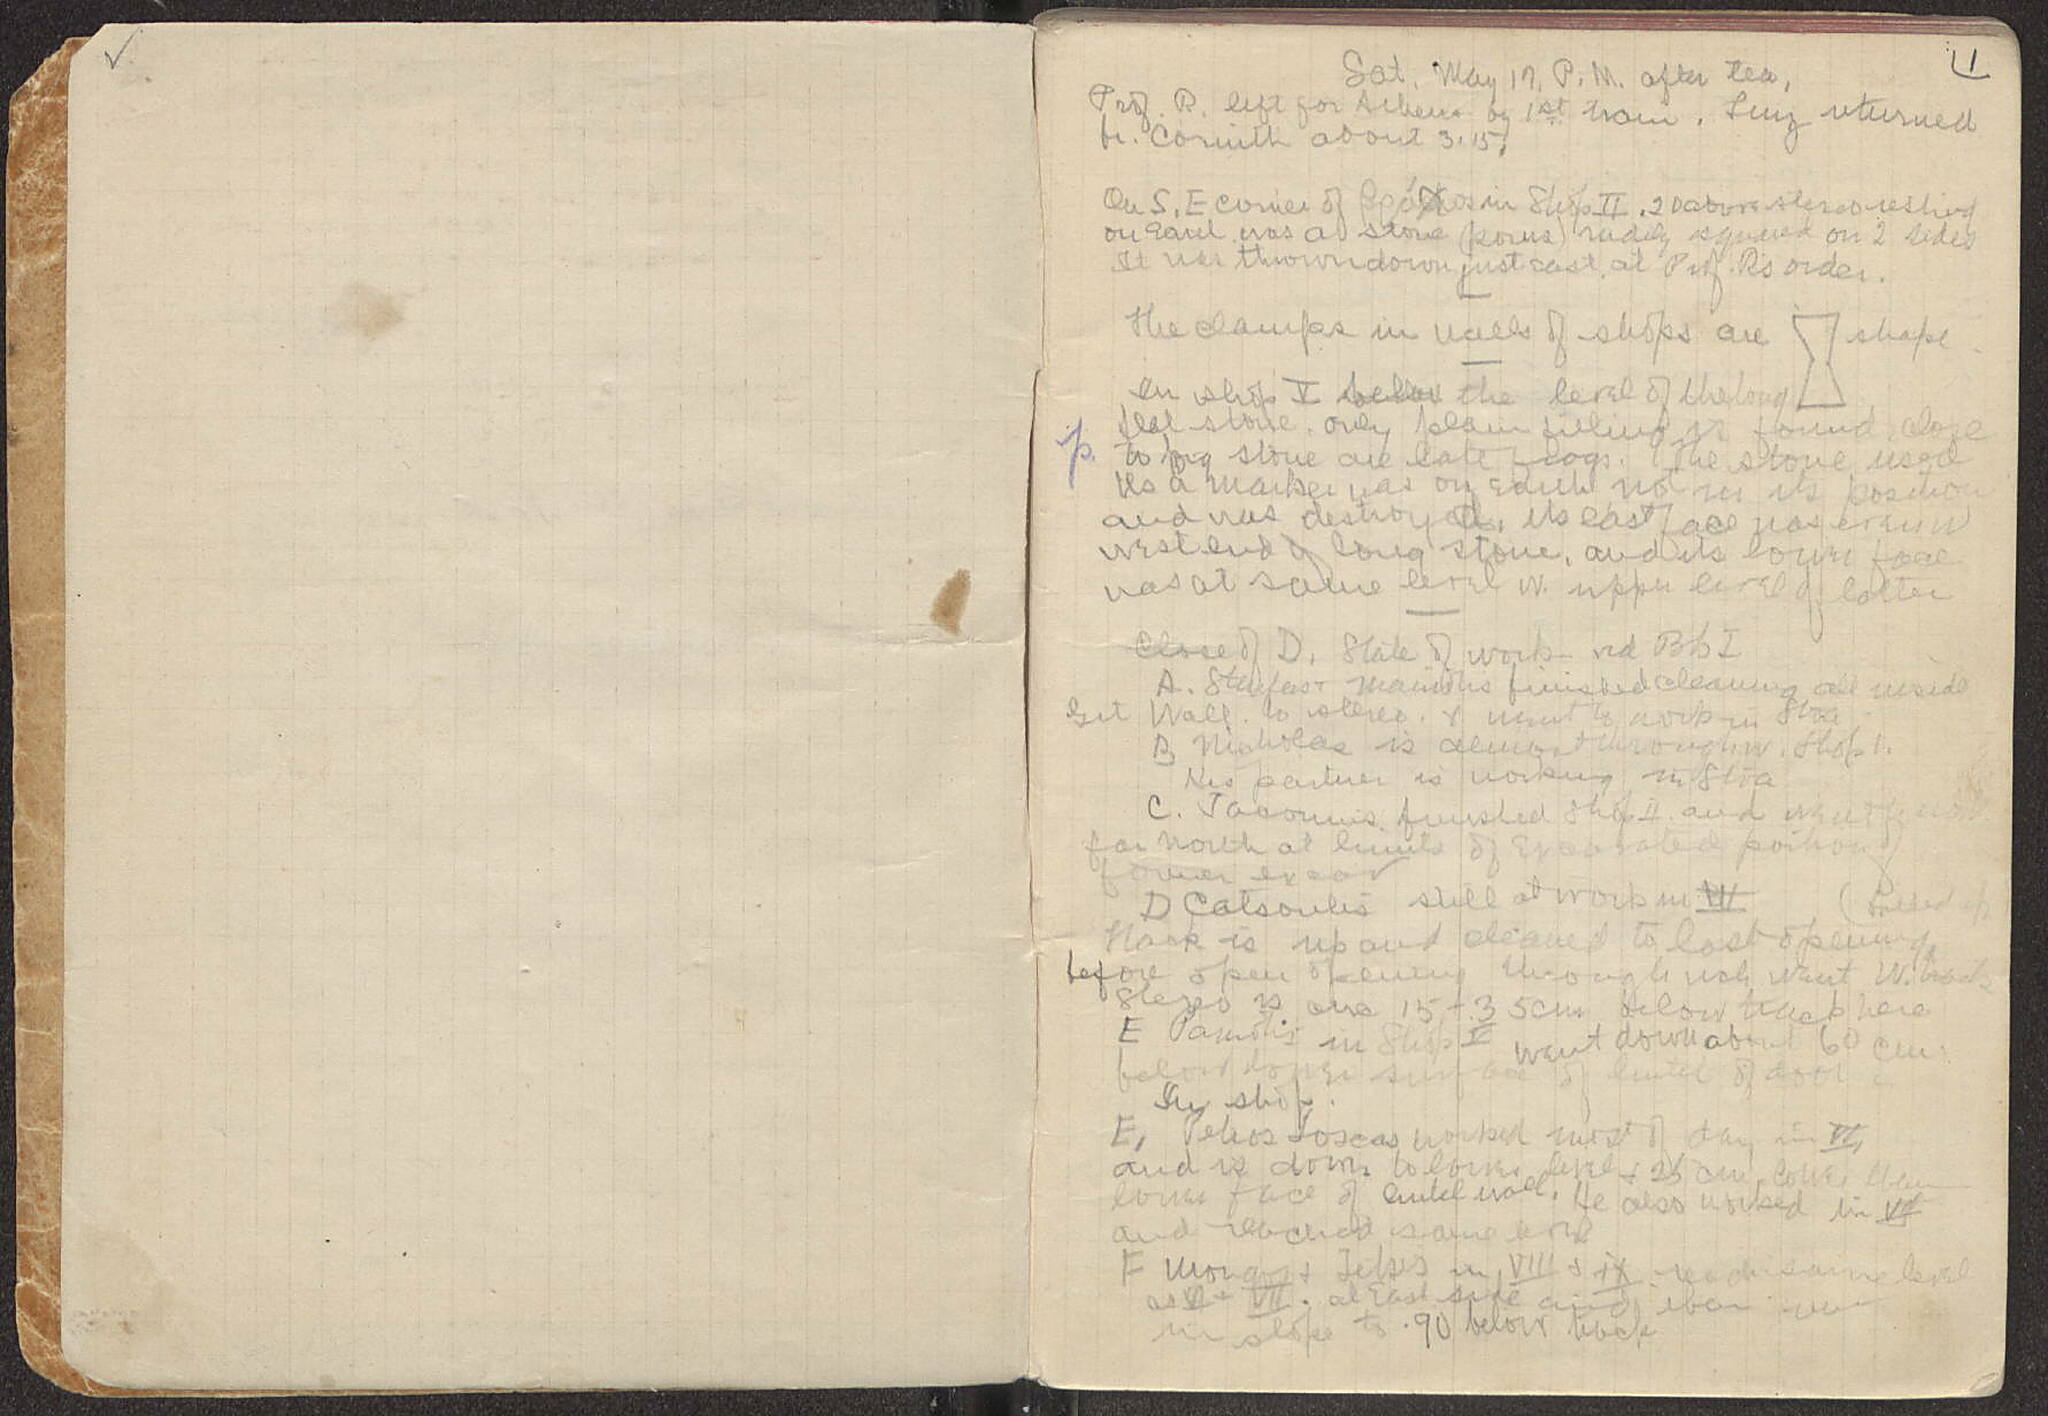 ✓
1
Sat. May 17, P.M. after tea,
Prof. R. left for Athens by 1st train. returned
fr. Corinth about 3.15.
On S. E corner of in Shop II .20 above stereo resting
on Earth was a stone (poros) rudely squared on 2 sides
It was thrown down just east, at Prof. R's order.
The clamps in walls of shops are shape
In shop V below the level of the long
flat stone. only plain filling is found. close
p. to big stone are late frags. The stone used
as a marker was on Earth not in its position
and was destroyed. its east face was even w
west end of long stone, and its lower face
was at same level w. upper level of latter
Close of D. State of work vid Bk I
A. finished cleaning all inside
Wall. to stereo. & went to work in Stoa
B Nicholas is almost through w. Shop I.
His partner is working in Stoa
C. finished Shop II and went
far North at limits of Excavated portion of
former excav
D Catsoulis still at work in VII
Track is up and cleaned to last opening
before open opening through wh. went W. track
Stereo is are 15 - 35 cm below track here
E in Shop V went down about 60 cm.
below lower surface of lintel of door
in shop.
E, Petros worked most of day in VI,
and is down to lower level + 25 cm lower than
lower face of lintel wall. He also worked in
and reached same level
F in VIII & IX same level
VII. at East side
in slope to .90 below track